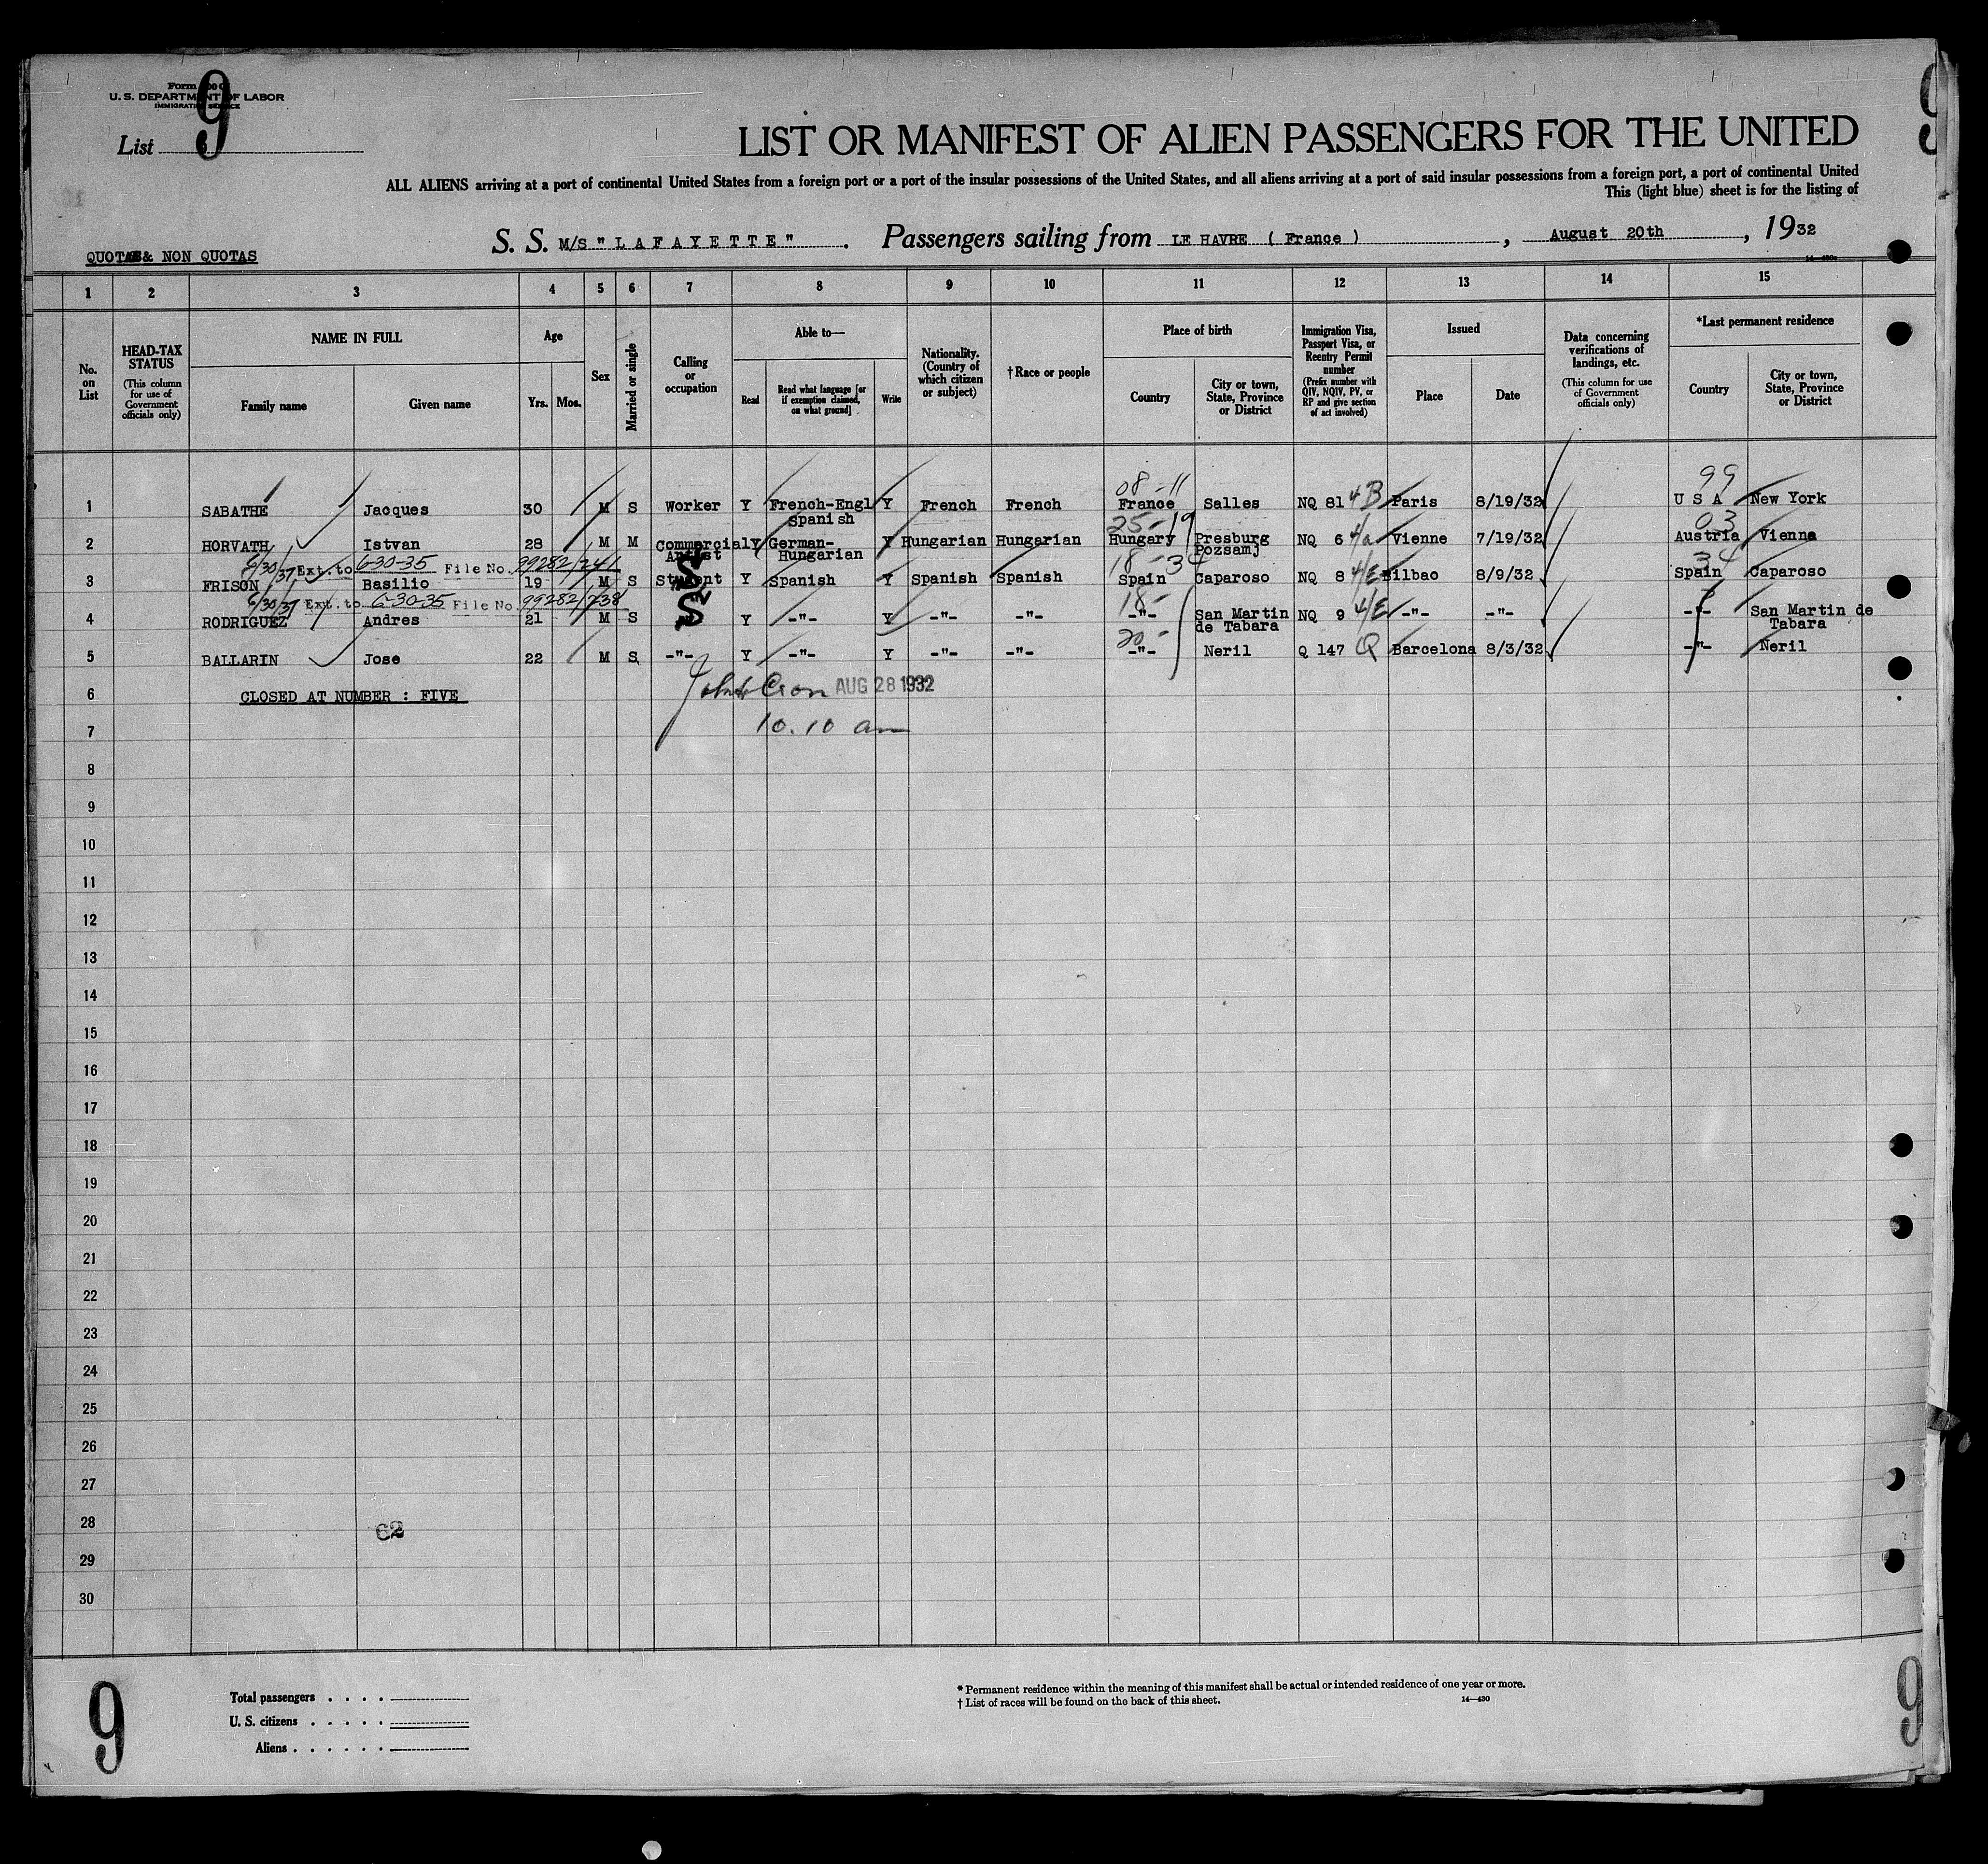 Form 500 C
U. S. DEPARTMENT OF LABOR
IMMIGRATION SERVICE
9
9
List
LIST OR MANIFEST OF ALIEN PASSENGERS FOR THE UNITED
ALL ALIENS arriving at a port of continental United States from a foreign port or a port of the insular possessions of the United States, and all aliens arriving at a port of said insular possessions from a foreign port, a port of continental United
This (light blue) sheet is for the listing of
S. S. M/S "LAFAYETTE" . Passengers sailing from LE HAVRE ( France ) , August 20th , 1932
QUOTAS & NON QUOTAS
1 2 3 4 5 6 7 8 9 10 11 12 13 14 15
No. on List
HEAD-TAX STATUS (This column for use of Government officials only)
NAME IN FULL Family name Given name
Age Yrs. Mos.
Sex
Married or single
Calling or occupation
Able to— Read Read what language [or if exemption claimed, on what ground] Write
Nationality. (Country of which citizen or subject)
†Race or people
Place of birth Country City or town, State, Province or District
Immigration Visa, Passport Visa, or Reentry Permit number (Prefix number with QIV, NQIV, PV, or RP and give section of act involved)
Issued Place Date
Data concerning verifications of landings, etc. (This column for use of Government officials only)
*Last permanent residence Country City or town, State, Province or District
08-11 99
1 SABATHE Jacques 30 M S Worker Y French-Engl Y French French France Salles NQ 81 4B Paris 8/19/32 U S A New York
Spanish 25-19 03
2 HORVATH Istvan 28 M M Commercial Y German- Y Hungarian Hungarian Hungary Presburg NQ 6 4/a Vienne 7/19/32 Austria Vienna
Artist Hungarian Pozsamj
6/30/37 Ext. to 6-30-35 File No. 99282/241 18-34 34
3 FRISON Basilio 19 M S Student S Y Spanish Y Spanish Spanish Spain Caparoso NQ 8 4/E Bilbao 8/9/32 Spain Caparoso
6/30/37 Ext. to 6-30-35 File No. 99282/238 18-
4 RODRIGUEZ Andres 21 M S S Y -"- Y -"- -"- -"- San Martin NQ 9 4/E -"- -"- -"- San Martin de
de Tabara Tabara
20-
5 BALLARIN Jose 22 M S -"- Y -"- Y -"- -"- -"- Neril Q 147 Q Barcelona 8/3/32 -"- Neril
6 CLOSED AT NUMBER : FIVE AUG 28 1932
7 10.10 am
8
9
10
11
12
13
14
15
16
17
18
19
20
21
22
23
24
25
26
27
28 62
29
30
9
9
Total passengers . . . .
U. S. citizens . . . . .
Aliens . . . . . .
* Permanent residence within the meaning of this manifest shall be actual or intended residence of one year or more.
† List of races will be found on the back of this sheet. 14—430